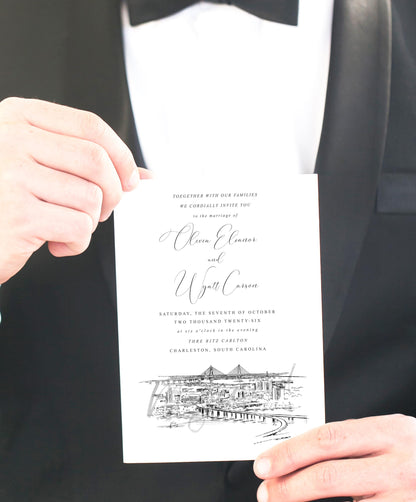 TOEGETHER WITH OUR FAMILIES
WE CORDIALLY INVITE YOU
to the marriage of
Olivia Eleanor
and
Wyatt Carson
SATURDAY, THE SEVENTH OF OCTOBER
TWO THOUSAND TWENTY-SIX
at six o'clock in the evening
THRE RITZ CARLTON
CHARLESTON, SOUTH CAROLINA